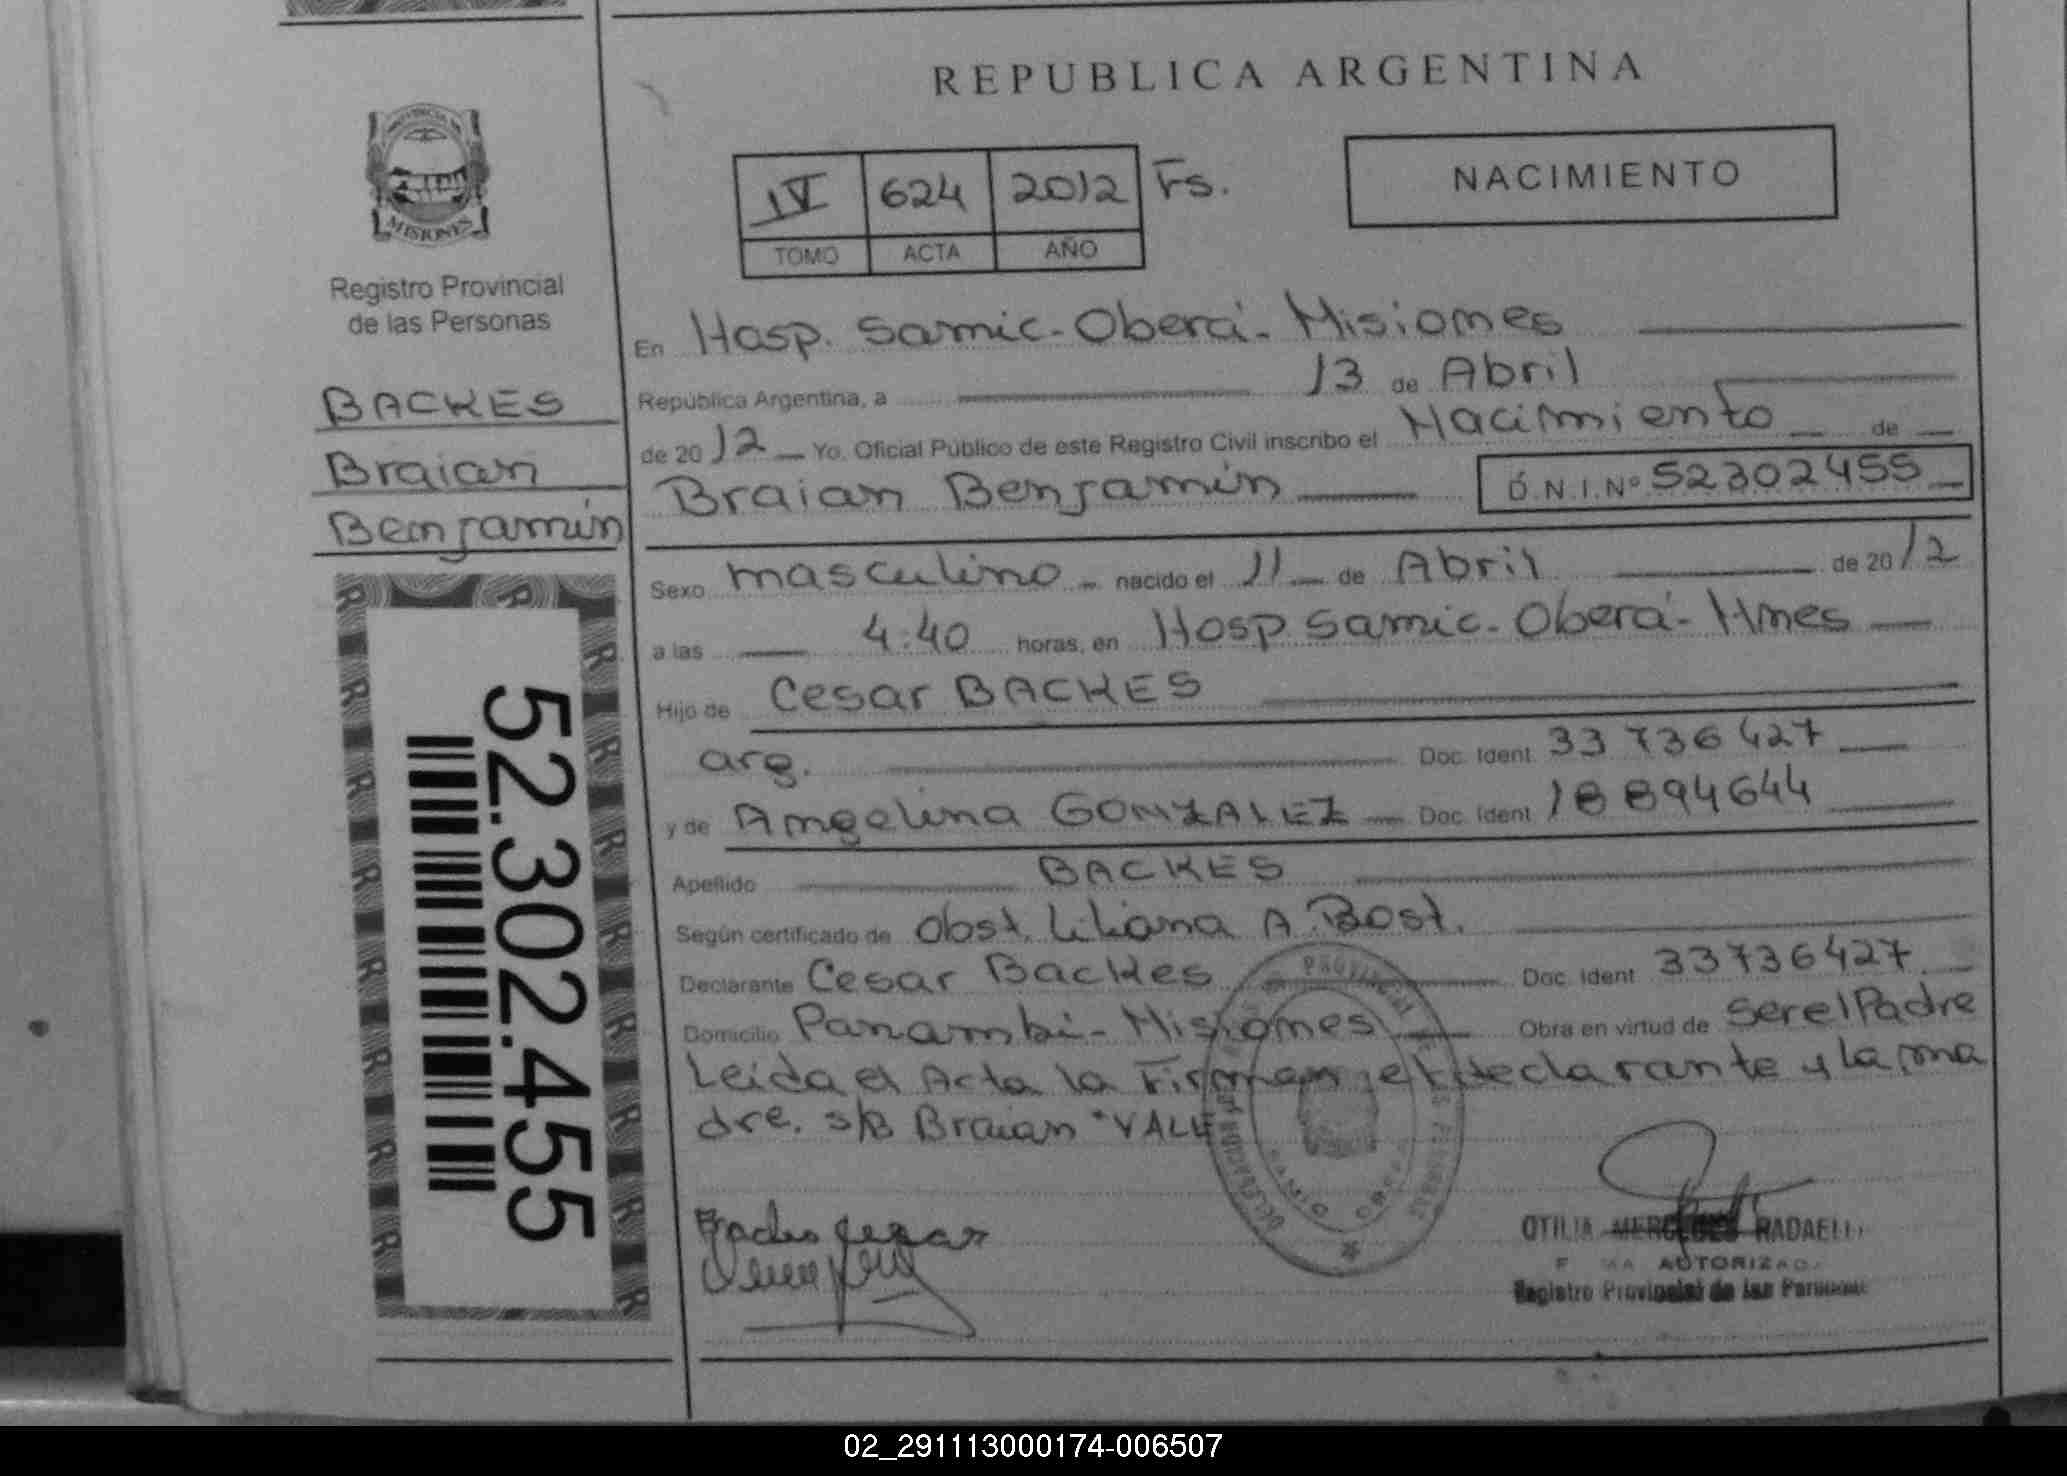 REPUBLICA ARGENTINA
PROVINCIA DE
MISIONES
Registro Provincial
de las Personas
BACKES
Braian
Benjamín
52.302.455
IV 624 2012 Fs.
TOMO ACTA AÑO
NACIMIENTO
En Hosp. Samic - Oberá - Misiones
República Argentina, a 13 de Abril
de 2012 Yo, Oficial Público de este Registro Civil inscribo el Nacimiento de
Braian Benjamín D.N.I. Nº 52302455
Sexo masculino nacido el 11 de Abril de 2012
a las 4:40 horas, en Hosp Samic - Oberá - Mnes
Hijo de Cesar BACKES
arg. Doc. Ident. 33736427
y de Angelina GONZALEZ Doc. Ident. 18894644
Apellido BACKES
Según certificado de Obst. Liliana A. Bost.
Declarante Cesar Backes Doc. Ident. 33736427
Domicilio Panambi - Misiones Obra en virtud de ser el Padre
Leida el Acta la Firman el declarante y la ma
dre. s/B Braian "VALE
Backes Cesar
OTILIA MERCEDES RADAELLI
FIRMA AUTORIZADA
Registro Provincial de las Personas
02_291113000174-006507